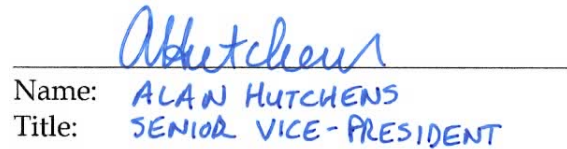 AHutchens
Name: ALAN HUTCHENS
Title: SENIOR VICE-PRESIDENT